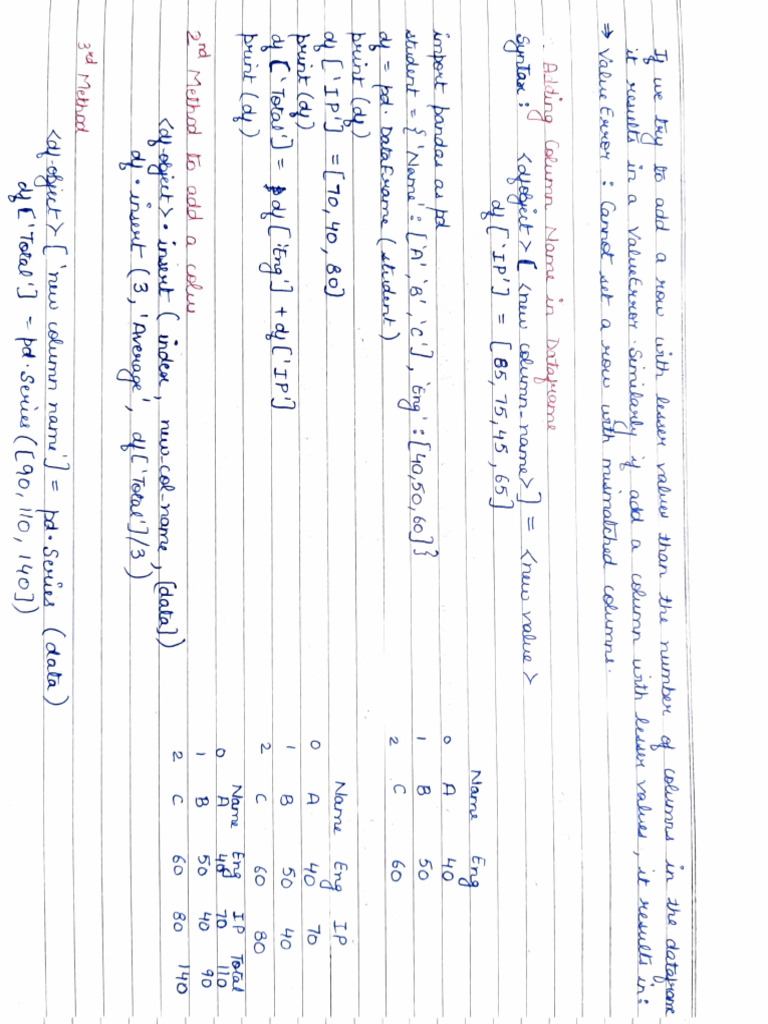 If we try to add a row with lesser values than the number of columns in the dataframe
it results in a ValueError. Similarly if add a column with lesser values, it results in:
⇒ ValueError : Cannot set a row with mismatched columns.
Adding Column Name in Dataframe
Syntax : <df object> [ <new column-name>] = <new value>
df ['IP'] = [85, 75, 45, 65]
import pandas as pd
student = {'Name' : ['A', 'B', 'C'], 'Eng' : [40, 50, 60]}
df = pd. DataFrame (student)
print (df)
Name Eng
0 A 40
1 B 50
2 C 60
df ['IP'] = [70, 40, 80]
print (df)
df ['Total'] = df ['Eng'] + df ['IP']
print (df)
Name Eng IP
0 A 40 70
1 B 50 40
2 C 60 80
Name Eng IP Total
0 A 40 70 110
1 B 50 40 90
2 C 60 80 140
2nd Method to add a colum
<df-object> . insert ( index, new-col-name, [data])
df . insert (3, 'Average', df ['Total']/3)
3rd Method
<df-object> ['new column name'] = pd. Series (data)
df ['Total'] = pd. Series ([90, 110, 140])